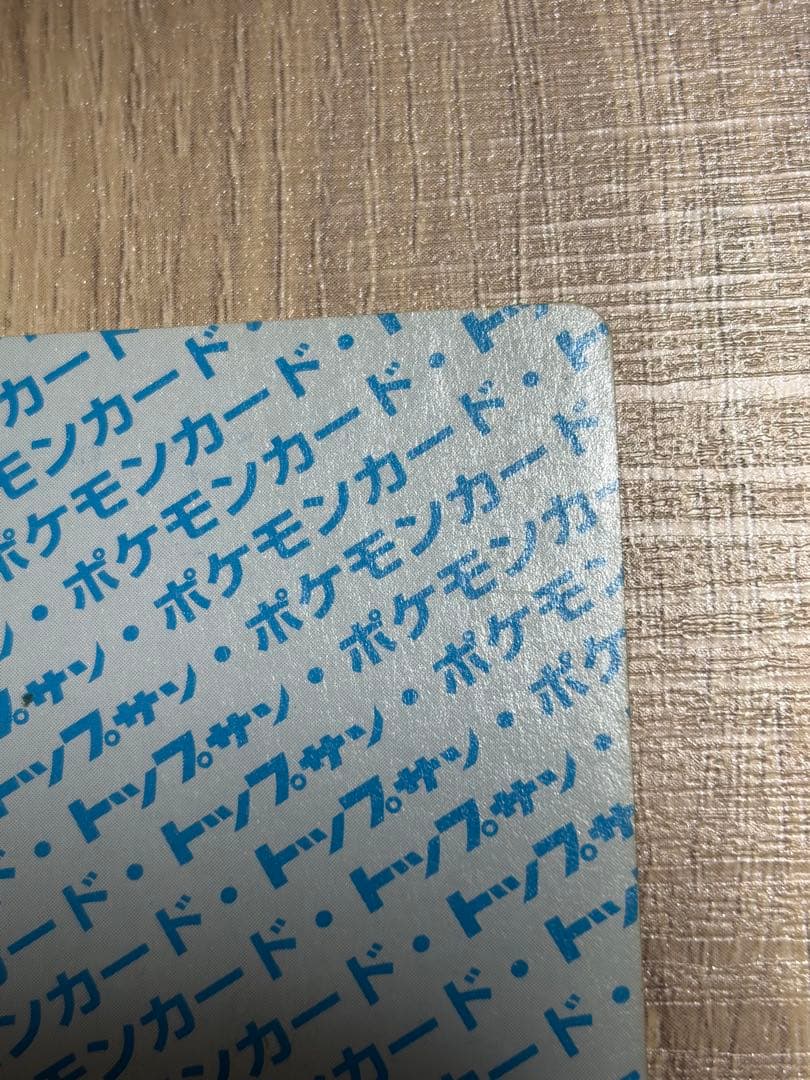 カード
モンカード・
ポケモンカード・ト
・ポケモンカード・トッ
ン・ポケモンカード・ト
プサン・ポケモンカード
トップサン・ポケモンカー
・トップサン・ポケモン
ド・トップサン・ポケ
ード・トップサン・
ンカード・トップサ
モンカード・トッ
ンカード・